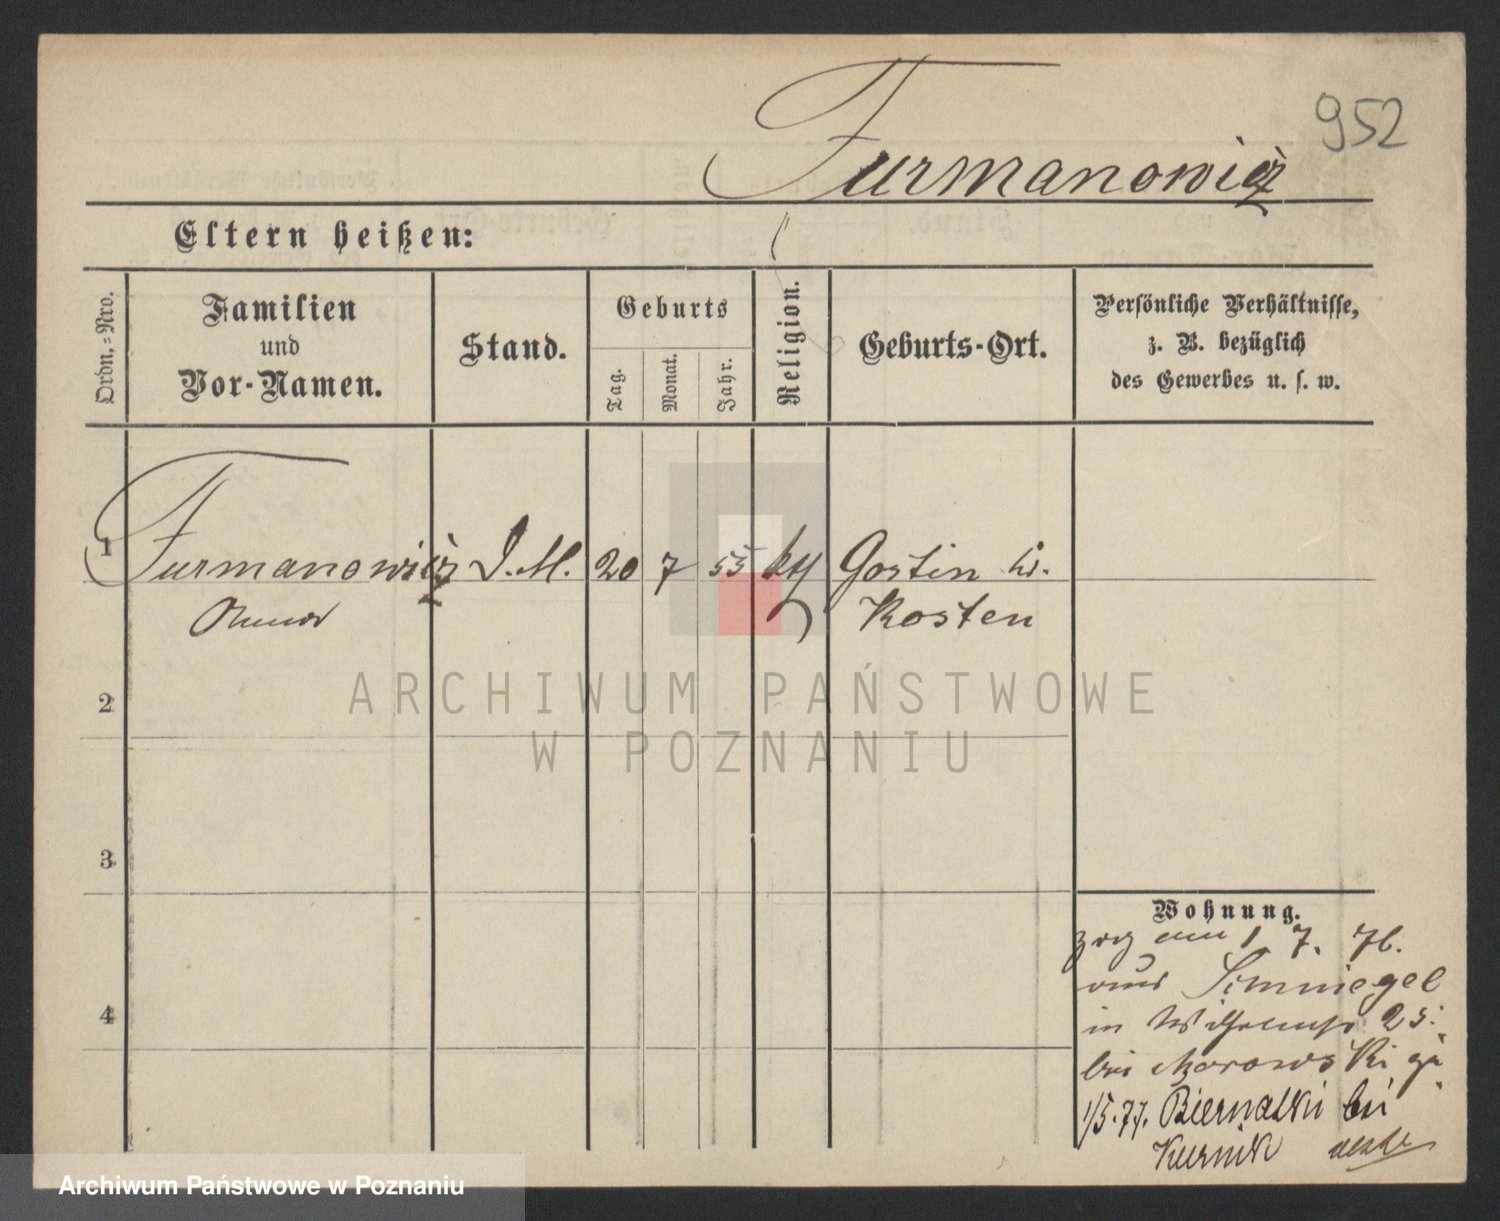 952
Furmanowicz
Eltern heißen:
Ordn.=Nro.
Familien
und
Vor-Namen.
Stand.
Geburts
Tag.
Monat.
Jahr.
Religion.
Geburts-Ort.
Persönliche Verhältnisse,
z. B. bezüglich
des Gewerbes u. s. w.
1
Furmanowicz D. M. 20 7 55 Gostin
Kosten
2
3
4
Wohnung.
zog am 1 7. 76.
aus Schmiegel
in Wilhelmstr 25.
bei
1/5.77. Biernatki bei
Kurnik
ARCHIWUM PAŃSTWOWE
W POZNANIU
Archiwum Państwowe w Poznaniu